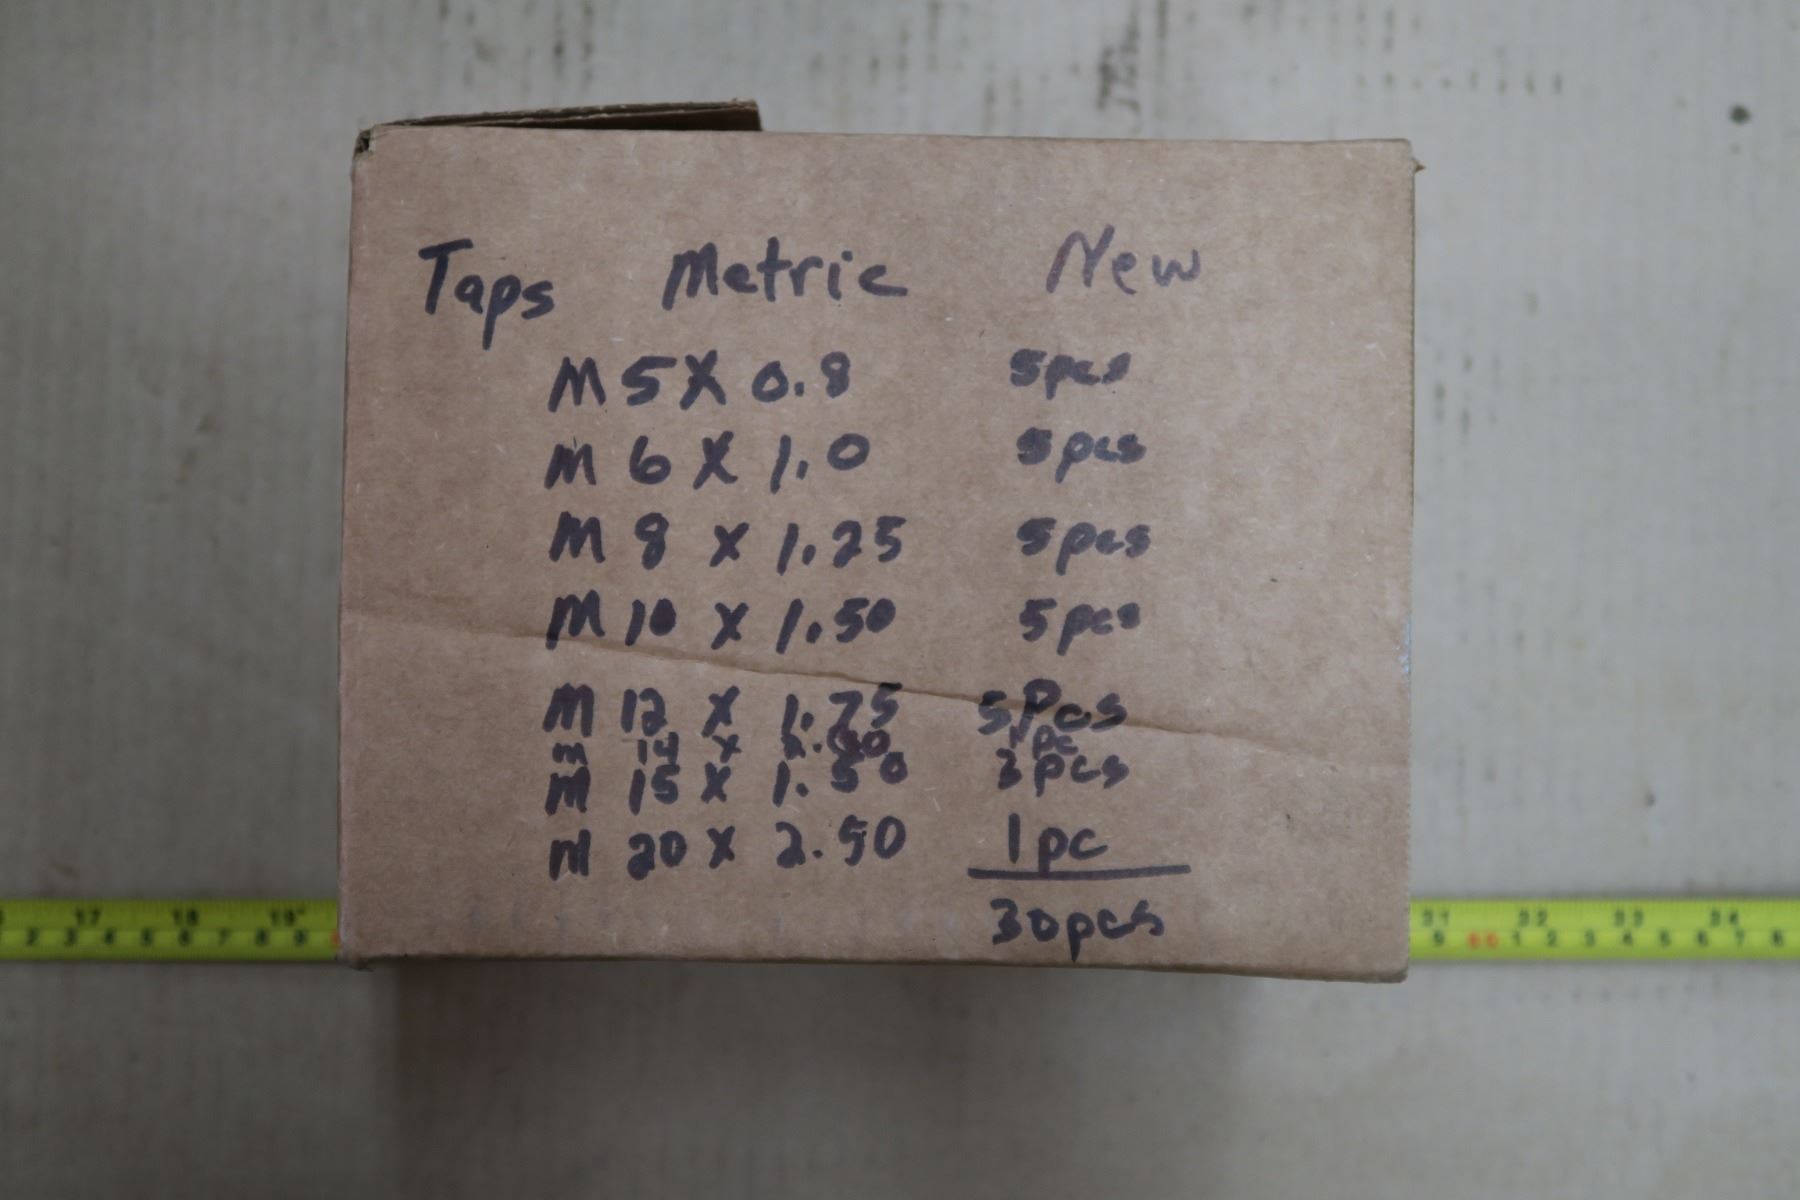 Taps Metric New
M 5 X 0.8 5pcs
M 6 X 1.0 5pcs
M 8 X 1.25 5pcs
M 10 X 1.50 5pcs
M 12 X 1.75 5 Pcs
m 14 x 2.00 1 pc
M 15 X 1.50 3pcs
M 20 X 2.50 1 pc
30pcs
17 18 19 31 32 33 34
2 3 4 5 6 7 8 9 9 1 2 3 4 5 6 7 8